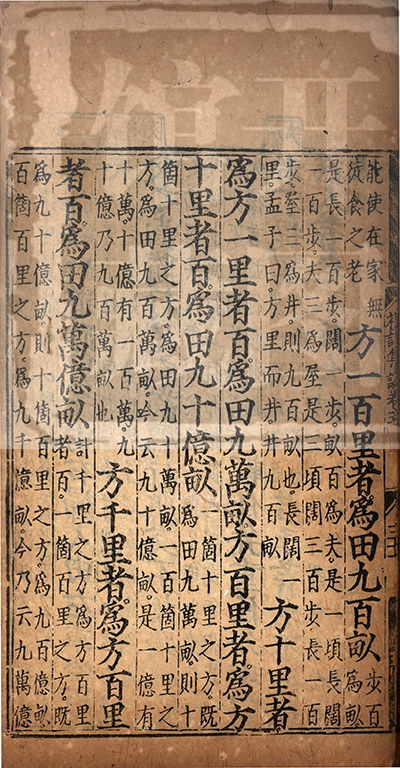 能使在家無
徒食之老
方一百里者。爲田九百畝
步百
爲畝
是長一百步。闊一步。畝百爲夫。是一頃長闊
一百步。夫三爲屋。是三頃闊三百步長一百
步。屋三爲井。則九百畝也。長闊一
里。孟子曰。方里而井。井九百畝
方十里者。
爲方一里者百。爲田九萬畝。方百里者。爲方
十里者百。爲田九十億畝
一箇十里之方。既
爲田九萬畝。則十
箇十里之方。爲田九十萬畝。一百箇十里之
方。爲田九百萬畝。今云九十億畝。是一億有
十萬。十億有一百萬。九
十億乃九百萬畝也
方千里者。爲方百里
者百。爲田九萬億畝
計千里之方。爲方百里
者百。一箇百里之方。既
爲九十億畝。則十箇百里之方。爲九百億畝。
百箇百里之方。爲九千億畝。今乃云九萬億